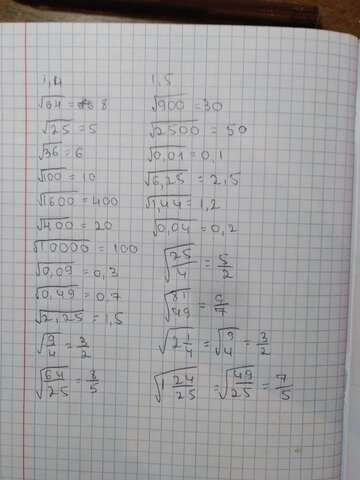 1,4
√64 = 8
√25 = 5
√36 = 6
√100 = 10
√1600 = 400
√400 = 20
√10000 = 100
√0,09 = 0,3
√0,49 = 0,7
√2,25 = 1,5
√9/4 = 3/2
√64/25 = 8/5
1,5
√900 = 30
√2500 = 50
√0,01 = 0,1
√6,25 = 2,5
√1,44 = 1,2
√0,04 = 0,2
√25/4 = 5/2
√81/49 = 9/7
√2 1/4 = √9/4 = 3/2
√1 24/25 = √49/25 = 7/5